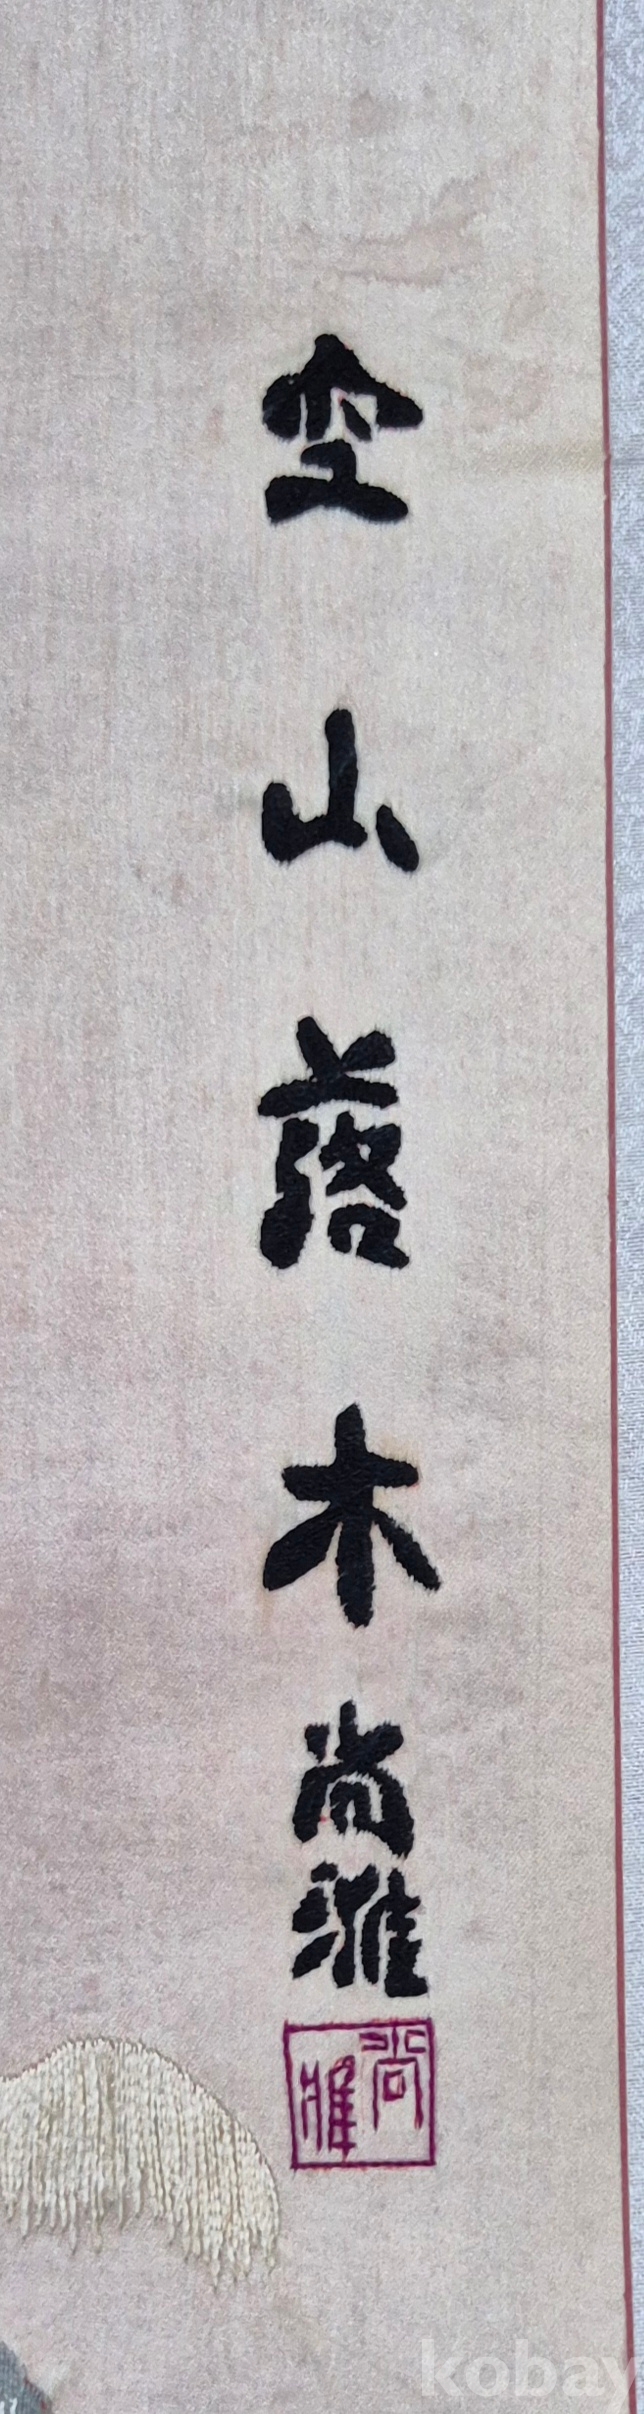 空山落木
尚雅
尚雅
kobay